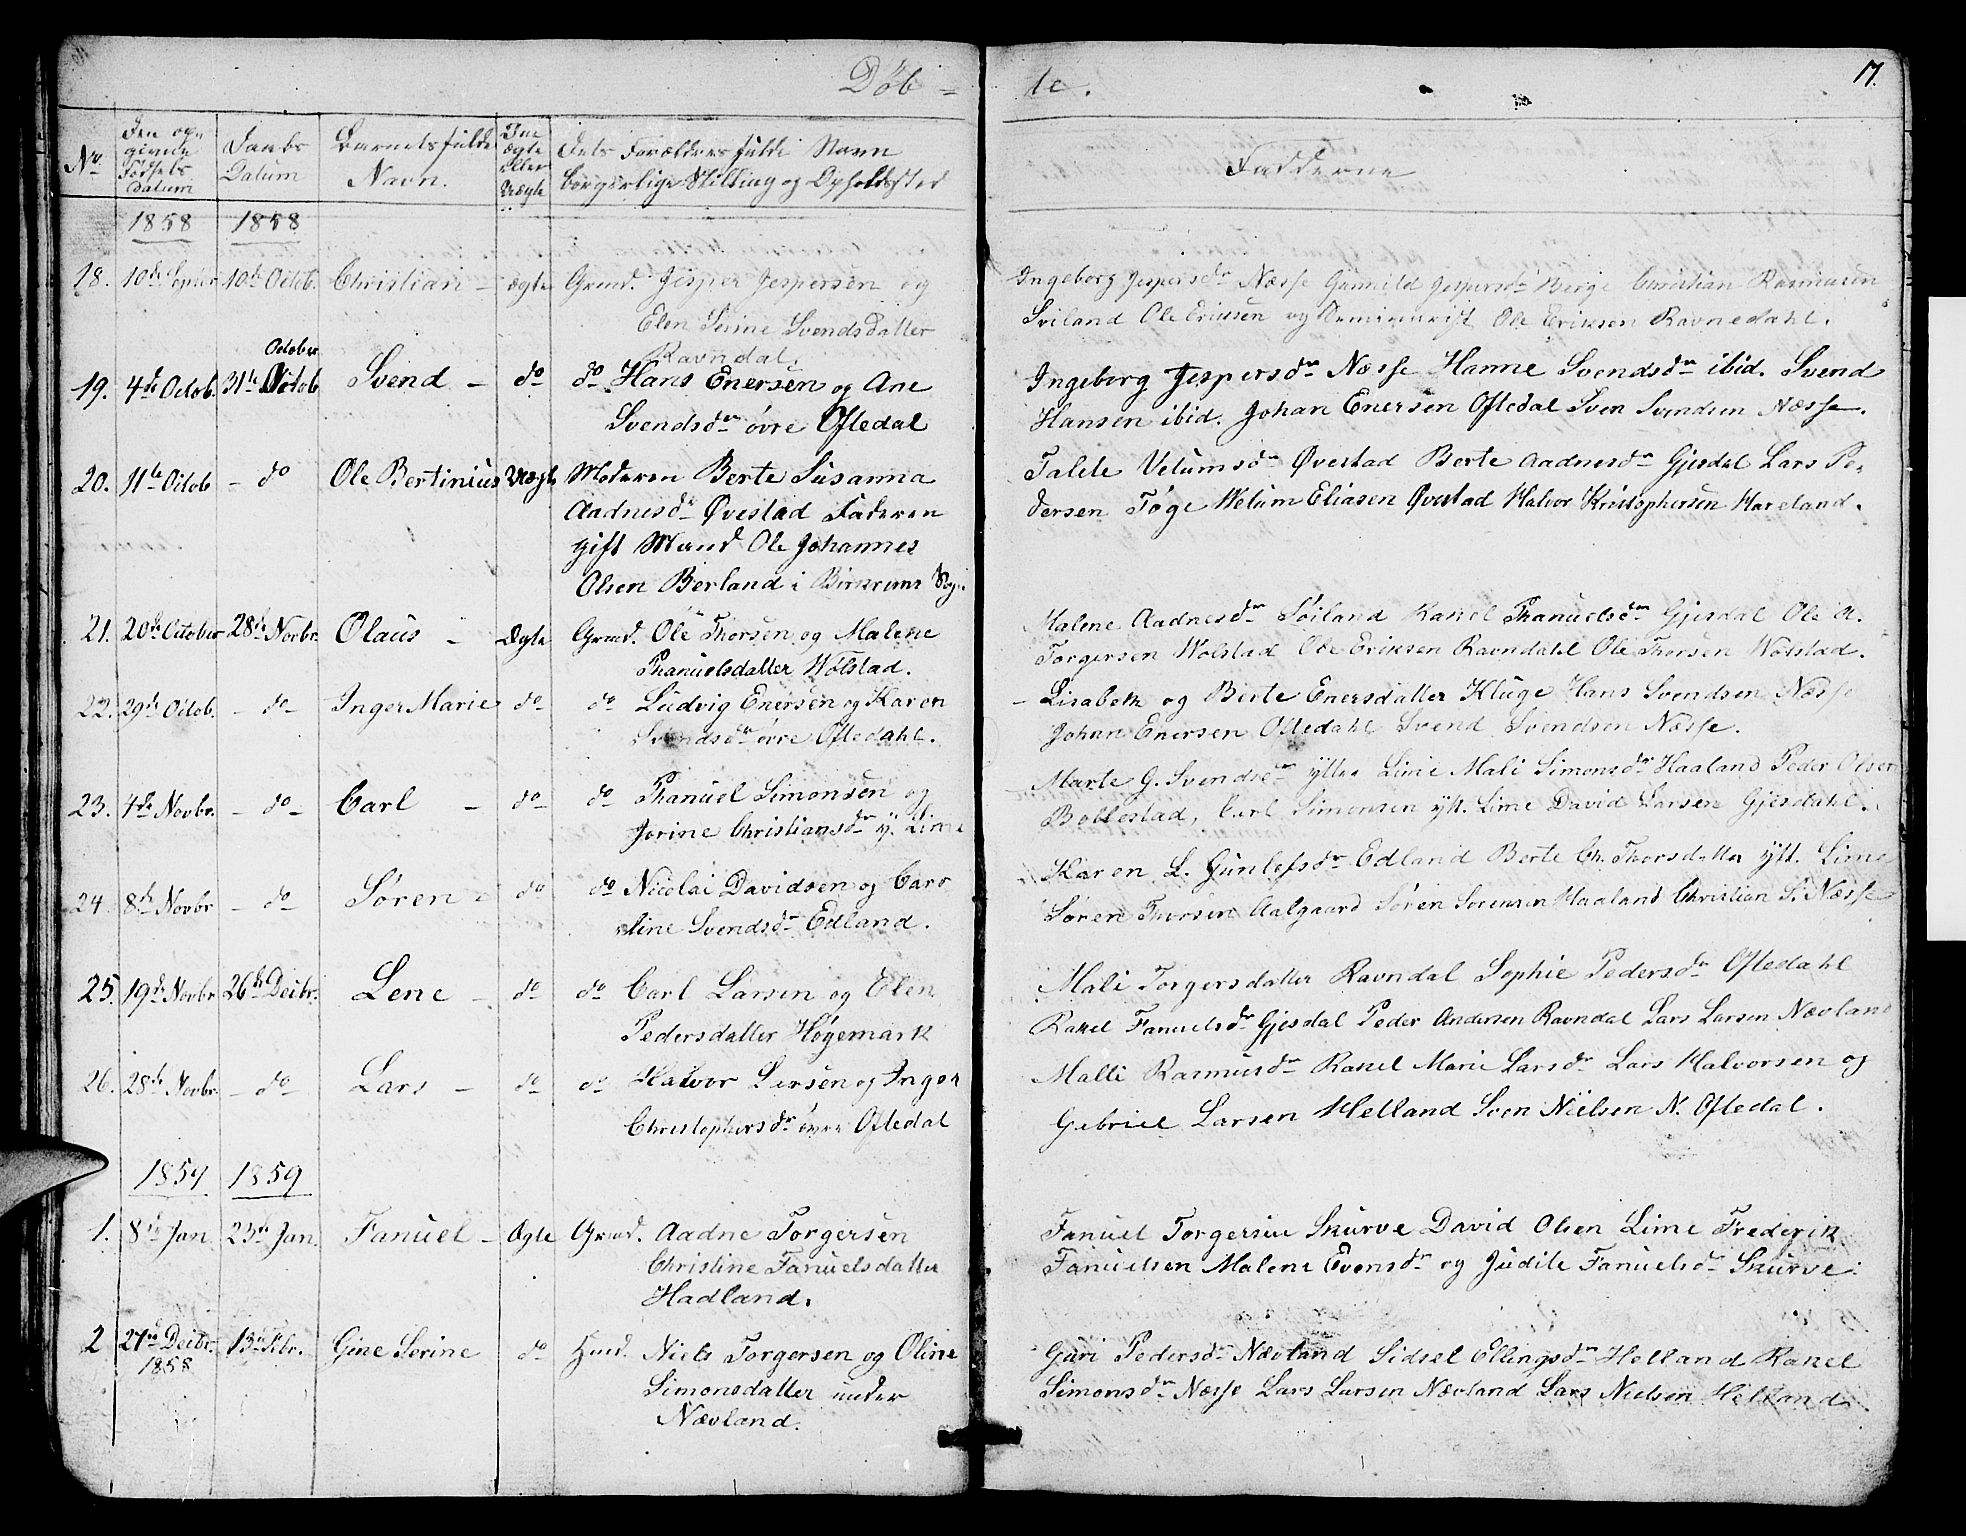 Døb = te.
17.
No
Den op- givne Fødsels Datum
Daabs Datum
Barnets fulde Navn.
Om ægte eller Uægte
Dets Forældres fulde Navn borgerlige Stilling og Opholdsted
Fadderne
1858 1858
18. 10de Septbr 10de Octob. Christian - ægte Grmd. Jesper Jespersen og
Elen Serine Svendsdatter
Ravndal.
Ingeborg Jespersdr Næsse Gunnild Jespersdr Berge Christian Rasmusen
Sviland Ole Eriksen og Seminarist Ole Eriksen Ravnedahl.
October
19. 4de Octob. 31te Octob Svend - do do Hans Enersen og Ane
Svendsdr øvre Oftedal
Ingeborg Jespersdr Næsse Hanne Svendsdr ibid. Svend
Hansen ibid. Johan Enersen Oftedal Sven Svendsen Næsse.
20. 11te Octob - do Ole Bertinius Uægte Moderen Berte Susanna
Aadnesdr Øvestad Faderen
gift Mand Ole Johannes
Olsen Berland i Birkrems Sogn
Talete Velumsdr Øvestad Berte Aadnesdr Gjesdal Lars Pe-
dersen Tøge Welum Eliasen Øvestad Halvor Kristophersen Hareland.
21. 20de October 28de Novbr. Olaus - Ægte Grmd. Ole Thorsen og Malene
Phanuelsdatter Wolstad.
Malene Aadnesdr Søiland Rakel Phanuelsdr Gjesdal Ole A.
Torgersen Wolstad Ole Eriksen Ravndahl Ole Thorsen Wolstad.
22. 29de Octob. - do - Inger Marie do do Ludvig Enersen og Karen
Svendsdr øvre Oftedahl.
- Lisabeth og Berte Enersdatter Kluge Hans Svendsen Næsse
Johan Enersen Oftedahl Svend Svendsen Næsse.
23. 4de Novbr. - do - Carl - do do Phanuel Simonsen og
Jorine Christiansdr y. Lime
Marte G. Svendsdr yttre Lime Mali Simonsdr Haaland Peder Olsen
Bollestad, Carl Simonsen ytt. Lime David Larsen Gjesdahl.
24. 8de Novbr - do - Søren - do do Nicolai Davidsen og Caro
line Svendsdr Edland.
Karen L. Gunlefsdr Edland Berte Ch. Thorsdatter ytt. Lime
Søren Thorsen Aalgaard Søren Sørensen Haaland Christian S. Næsse
25. 19de Novbr 26de Decbr. Lene - do do Carl Larsen og Elen
Pedersdatter Høgemark
Mali Torgersdatter Ravndal Sophie Pedersdr Oftedahl
Rakel Fanuelsdr Gjesdal Peder Andersen Ravndal Lars Larsen Nævland
26. 28de Novbr. - do - Lars - do do Halvor Larsen og Inger
Christophersdr øvre Oftedal
Malli Rasmusdr Rakel Marie Larsdr Lars Halvorsen og
Gabriel Larsen Helland Sven Nielsen N. Oftedal.
1859 1859
1. 8de Jan. 23de Jan. Fanuel - Ægte Grmd. Aadne Torgersen
Christine Fanuelsdatter
Hadland.
Fanuel Torgersen Skurve David Olsen Lime Frederik
Fanuelsen Malene Evensdr og Judite Fanuelsdr Skurve.
2 27de Decbr. 13de Febr. Gine Serine do Huusd. Niels Torgersen og Oline
1858
Simonsdatter under
Nævland.
Guri Pedersdr Nævland Sidsel Ellingsdr Helland Rakel
Simonsdr Næsse Lars Larsen Nævland Lars Nielsen Helland.